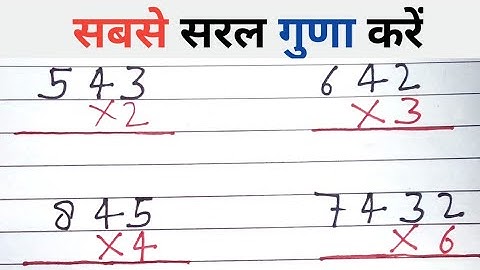 सबसे सरल गुणा करें
543
×2
642
×3
845
×4
7432
×6